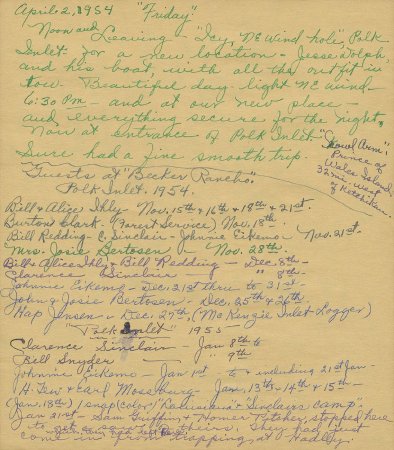 April 2, 1954 "Friday"
Noon and
Leaving - "Icy, NE Wind hole", Polk
Inlet for a new location - Jesse & Dolph
and his boat, with all the outfit in
tow. Beautiful day light NE Wind -
6:30 PM - and at our new place -
and everything secure for the night,
Now at entrance of Polk Inlet
Sure had a fine smooth trip.
Prince of
Wales Island
32 mi. west
of Ketchikan.
Guests at "Becker Rancho"
Polk Inlet. 1954.
Bill & Alice Ihly - Nov. 15th & 16th & 18th & 21st.
Burton Clark (Forest Service) Nov. 18th
Bill Redding - C. Sinclair - Johnnie Eikemo - Nov. 21st.
Mrs. Josie Bertosen Nov. 28th.
Bill & Alice Ihly - Bill Redding - Dec. 8th -
Clarence Sinclair - " 8th -
Johnnie Eikemo - Dec. 21st thru to 31st -
John & Josie Bertosen - Dec. 25th & 26th
Hap Jensen - Dec. 27th, (McKenzie Inlet Logger)
"Polk Inlet" 1955 -
Clarence Sinclair - Jan 8th to
Bill Snyder - " 9th
Johnnie Eikemo - Jan 1st to & including 21st Jan -
H. Tew & Earl Mossburg - Jan. 13th - 14th & 15th -
(Jan. 18th) 1 snap (color) "Sinclairs camp".
Jan 21st - Sam Griffin & Homer stopped here
to get theirs. They had just
come in from trapping, at Hadley.